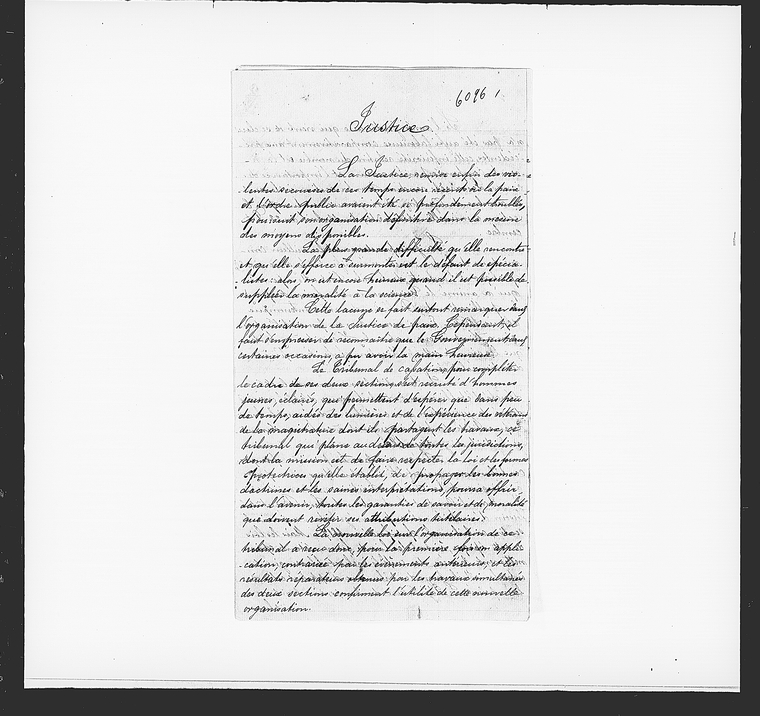 6096 1
Justice
La Justice, remise enfin des vio-
-lentes secousses de ces temps encore récents où la paix
et l'ordre public avaient été si profondément troublés,
poursuit son organisation définitive dans la mesure
des moyens disponibles.
La plus grande difficulté qu'elle rencontre
et qu'elle s'efforce à surmonter est le défaut de spécia-
listes: alors, on est encore heureux quand il est possible de
suppléer la moralité à la science.
Cette lacune se fait surtout remarquer dans
l'organisation de la Justice de paix. Cependant, il
faut s'empresser de reconnaître que le Gouvernement, dans
certaines occasions, a pu avoir la main heureuse.
Le Tribunal de cassation, pour compléter
le cadre de ses deux sections, s'est recruté d'hommes
jeunes, éclairés, qui permettent d'espérer que dans peu
de temps, aidés des lumières et de l'expérience des vétérans
de la magistrature dont ils partagent les travaux, ce
tribunal qui plane au dessus de toutes les juridictions,
dont la mission est de faire respecter la loi et les formes
protectrices qu'elle établit, de propager les bonnes
doctrines et les saines interprétations, pourra offrir
dans l'avenir, toutes les garanties de savoir et de moralité
que doivent revêtir ses attributions tutélaires.
La nouvelle loi sur l'organisation de ce
tribunal a reçu donc, pour la première fois son appli-
-cation, contrariée par les événements antérieurs; et les
résultats réparateurs obtenus par les travaux simultanés
des deux sections confirment l'utilité de cette nouvelle
organisation.